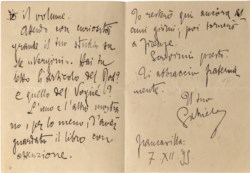 il volume.
Attendo con curiosità
grande il tuo studio su
le "Vergini". Hai tu
letto l'articolo del Dod?
e quello del Vogüé?
L'uno e l'altro mostra
no, per lo meno, d'aver
guardato il libro con
attenzione.
Io resterò qui ancora
anni giorni; poi tornerò
a Firenze.
Scrivimi presto.
Ti abbraccio fraterna
mente.
Il tuo
Gabriele
Francavilla:
7 XII 95